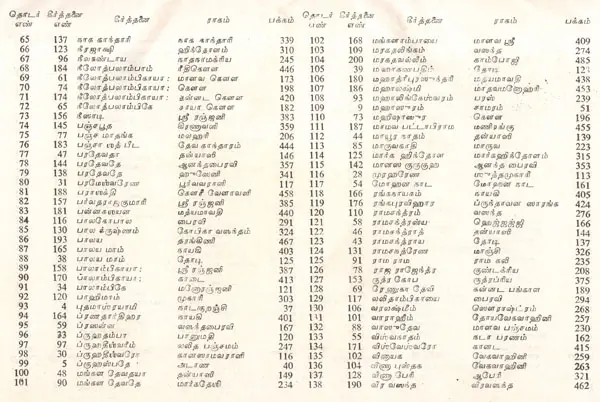 தொடர் எண் கீர்த்தனை எண் கீர்த்தனை ராகம் பக்கம்
65 137 நாக காந்தாரி நாக காந்தாரி 339
66 123 நீரஜாக்ஷி ஹிந்தோளம் 310
67 96 நீலகண்டாய நாதநாமக்ரிய 245
68 184 நீலோத்பலாம்பாம் ரீதிகௌள 446
69 61 நீலோத்பலாம்பிகாயா: மாளவ கௌள 173
70 74 நீலோத்பலாம்பிகாயா: கௌள 198
71 174 நீலோத்பலாம்பிகாயா: கன்னட கௌள 420
72 65 நீலோத்பலாம்பிகே சாயா கௌள 182
73 156 நீஸாடி ஸ்ரீ ரஞ்ஜனி 383
74 145 பஞ்சபூத கிரணாவளி 359
75 77 பஞ்ச மாதங்க மலஹரி 206
76 183 தேவ காந்தாரம் 444
77 47 பரதேவதா தன்யாஸி 146
78 144 பரதேவதே ஆனந்தபைரவி 357
79 138 பரதேவதே ஹுஸேனி 341
80 31 பரமேஸ்வரேண பூர்வவராளி 117
81 188 பராஸக்தி கௌரீ வேளாவளி 458
82 157 பர்வதராஜகுமாரி ஸ்ரீ ரஞ்ஜனி 385
83 181 பன்னகஸயன மத்யமாவதி 440
84 116 பாலகோபால பைரவி 291
85 130 பால க்ருஷ்ணம் கோபிகா வஸந்தம் 324
86 193 பாலய தரங்கிணி 467
87 165 பாலய மாம் காபி 403
88 38 பாலய மாம் தோடி 125
89 158 பாலாம்பிகாயா: ஸ்ரீ ரஞ்ஜனி 387
90 170 பாலாம்பிகாயா: கானடா 413
91 34 பாலாம்பிகே மனோரஞ்ஜனி 121
92 120 பாஹிமாம் முகாரி 303
93 4 நாடகுறஞ்ஜி 37
94 164 ப்ரணதார்திஹர காபி 401
95 59 ப்ரஸன்ன வஸந்தபைரவி 167
96 33 ப்ருஹதம்பா பானுமதி 120
97 97 ப்ருஹதீஸ்வரீம் லலித பஞ்சமம் 247
98 30 ப்ருஹதீஸ்வரோ கானஸாமவராளி 116
99 5 ப்ருஹஸ்பதே அடாண 40
100 48 மங்கள தேவதயா தன்யாஸி 149
101 90 மங்கள தேவதே மார்கதேஸி 234
தொடர் எண் கீர்த்தனை எண் கீர்த்தனை ராகம் பக்கம்
102 168 மங்களாம்பாயை மாளவ ஸ்ரீ 409
103 109 மரகதலிங்கம் வஸந்த 274
104 200 மரகதவல்லீம் காம்போஜி 485
105 39 தோடி
106 180 மத்யமாவதி 438
107 186 மஹாலக்ஷ்மி மாதவமனோஹரி 453
108 93 மஹாலிங்கேஸ்வரம் பரஸ் 239
109 9 மஹாஸுரம் சாமரம் 51
110 73 மஹிஷாஸுர கௌள 196
111 187 மாமவ பட்டாபிராம மணிரங்கு 455
112 44 மாயூர நாதம் தன்யாஸி 139
113 85 மாருவகாதி மாருவ 223
114 125 மார்க ஹிந்தோள மார்கஹிந்தோளம் 315
115 142 மானஸ குருகுஹ ஆனந்த பைரவி 353
116 28 முரஹரேண ஸுத்தமுகாரி 113
117 54 மோஹன நாட மோஹன நாட 161
118 166 ரங்கநாயகம் காபி 405
119 176 ரங்கபுரவிஹார ப்ருந்தாவன ஸாரங்க 424
120 110 ராமசந்த்ரம் வஸந்த 276
121 58 ராமசந்த்ரஸ்ய 166
122 46 ராமசந்த்ராத் தன்யாஸி 144
123 43 ராமசந்த்ராய தோடி 137
124 131 ராமசந்த்ரேண மாஞ்ஜி 326
125 91 ராம ராம ராம கலி 235
126 78 ராஜ ராஜேந்த்ர குண்டக்ரிய 208
127 153 ருத்ர கோப ருத்ரப்ரிய 375
128 69 ரேணுகா தேவி கன்னட பங்காள 189
129 117 லலிதாம்பிகாயை பைரவி 294
130 106 வரலக்ஷ்மீம் ஸௌராஷ்ட்ரம் 268
131 101 வாராஹீம் வேகவாஹினி 257
132 88 வாஸுதேவ மாளவ பஞ்சமம் 230
133 55 விஸ்வநாதம் நடாபரணம் 162
134 171 விஸ்வேஸ்வரோ கானடா 415
135 102 விநாயக வேகவாஹினி 259
136 104 வீணா புஸ்தக வேகவாஹினி 263
137 128 வீணா பேரி ஆபேரி 321
138 190 வீர வஸந்த வீரவஸந்த 462